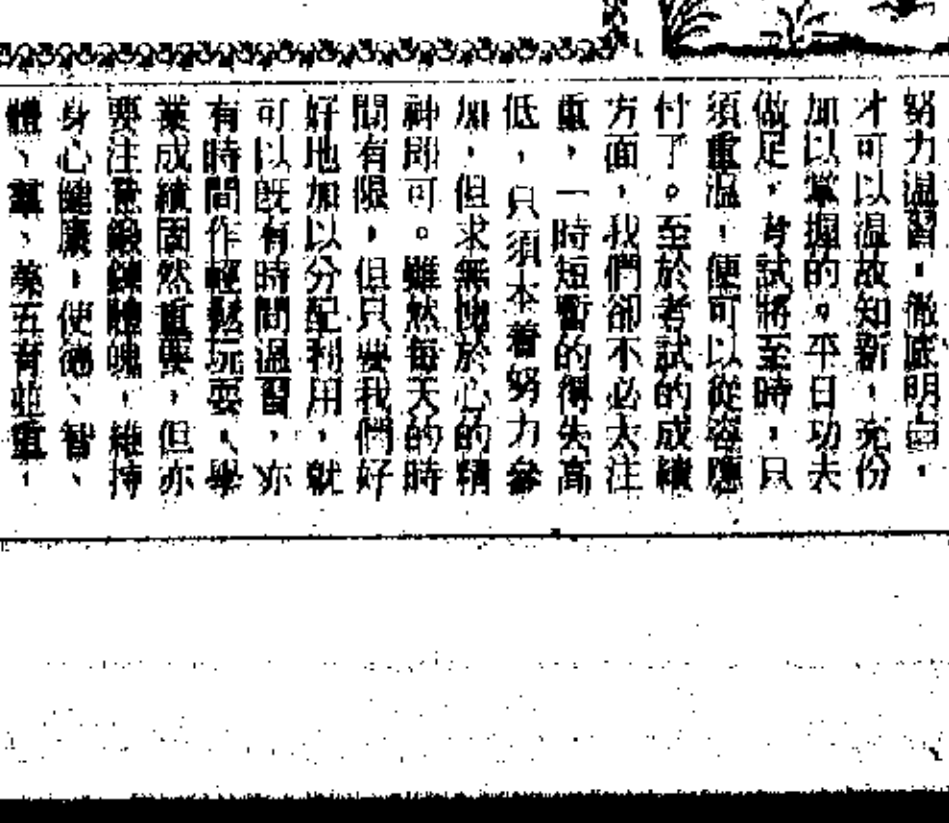 努力温習，徹底明白，
才可以温故知新，充份
加以掌握的。平日功夫
做足，考試將至時，只
須重温，便可以從容應
付了。至於考試的成績
方面，我們卻不必太注
重，一時短暫的得失高
低，只須本着努力參
加，但求無愧於心的精
神即可。雖然每天的時
間有限，但只要我們好
好地加以分配利用，就
可以既有時間温習，亦
有時間作輕鬆玩耍、學
業成績固然重要，但亦
要注意鍛鍊體魄，維持
身心健康，使德、智、
體、羣、美五育並重，